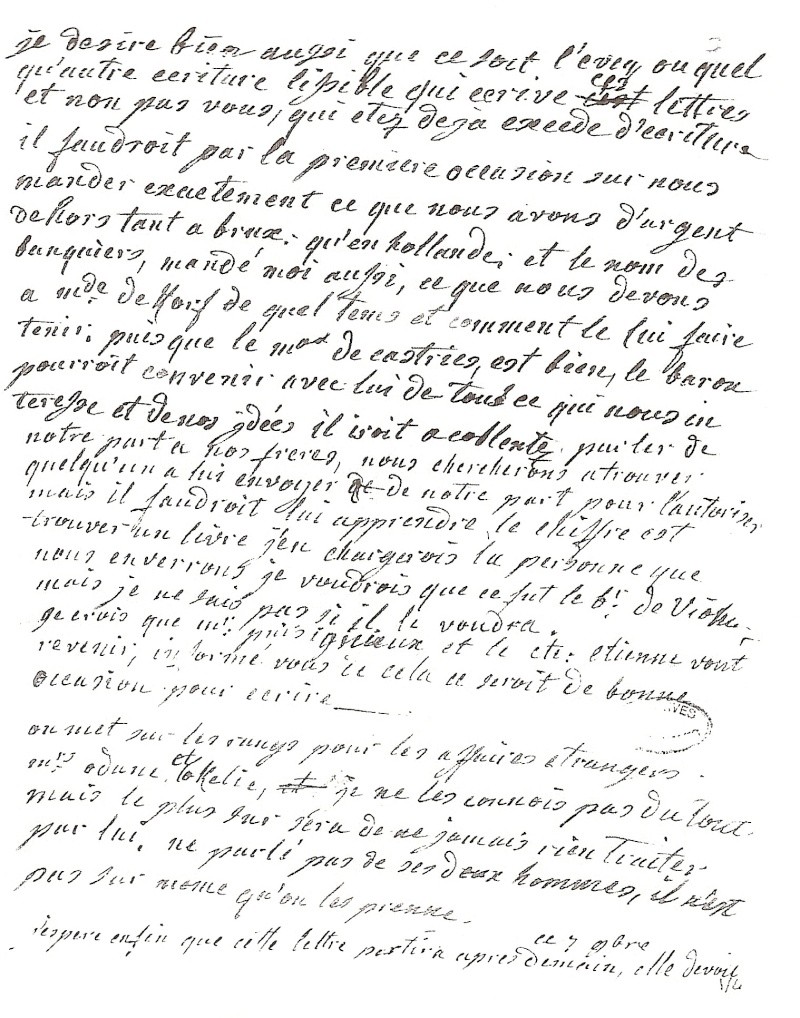 je desire bien aussi que ce soit l'eveq ou quel
qu'autre ecriture lisible qui ecrive ces lettres
et non pas vous, qui etez deja excedé d'ecriture
il faudroit par la premiere occasion sur nous
mander exactement ce que nous avons d'argent
dehors tant a brux: qu'en hollande, et le nom des
banquiers, mandé moi aussi, ce que nous devons
a mde de Korf de quel tems et comment le lui faire
tenir: puisque le mal de castries, est bien, le baron
pourroit convenir avec lui de tout ce qui nous in
teresse et de nos idées il iroit a coblentz parler de
notre part a nos freres, nous chercherons a trouver
quelqu'un a lui envoyer de notre part pour l'autoriser
mais il faudroit lui apprendre le chiffre est
trouver un livre j'en chargerois la personne que
nous enverrons je voudrois que ce fut le br: de
mais je ne sais pas si il le voudra.
je crois que mr: puisigneieux et le cte: etienne vont
revenir, informé vous de cela ce seroit de bonne
occasion pour ecrire
on met sur les rangs pour les affaires etrangers.
mrs et je ne les connois pas du tout
mais le plus sur sera de ne jamais rien traiter
par lui, ne parlé pas de ses deux hommes, il n'est
pas sur meme qu'on les prenne.
ce 7 obre
j'espere enfin que cette lettre partira apres demain, elle devoit